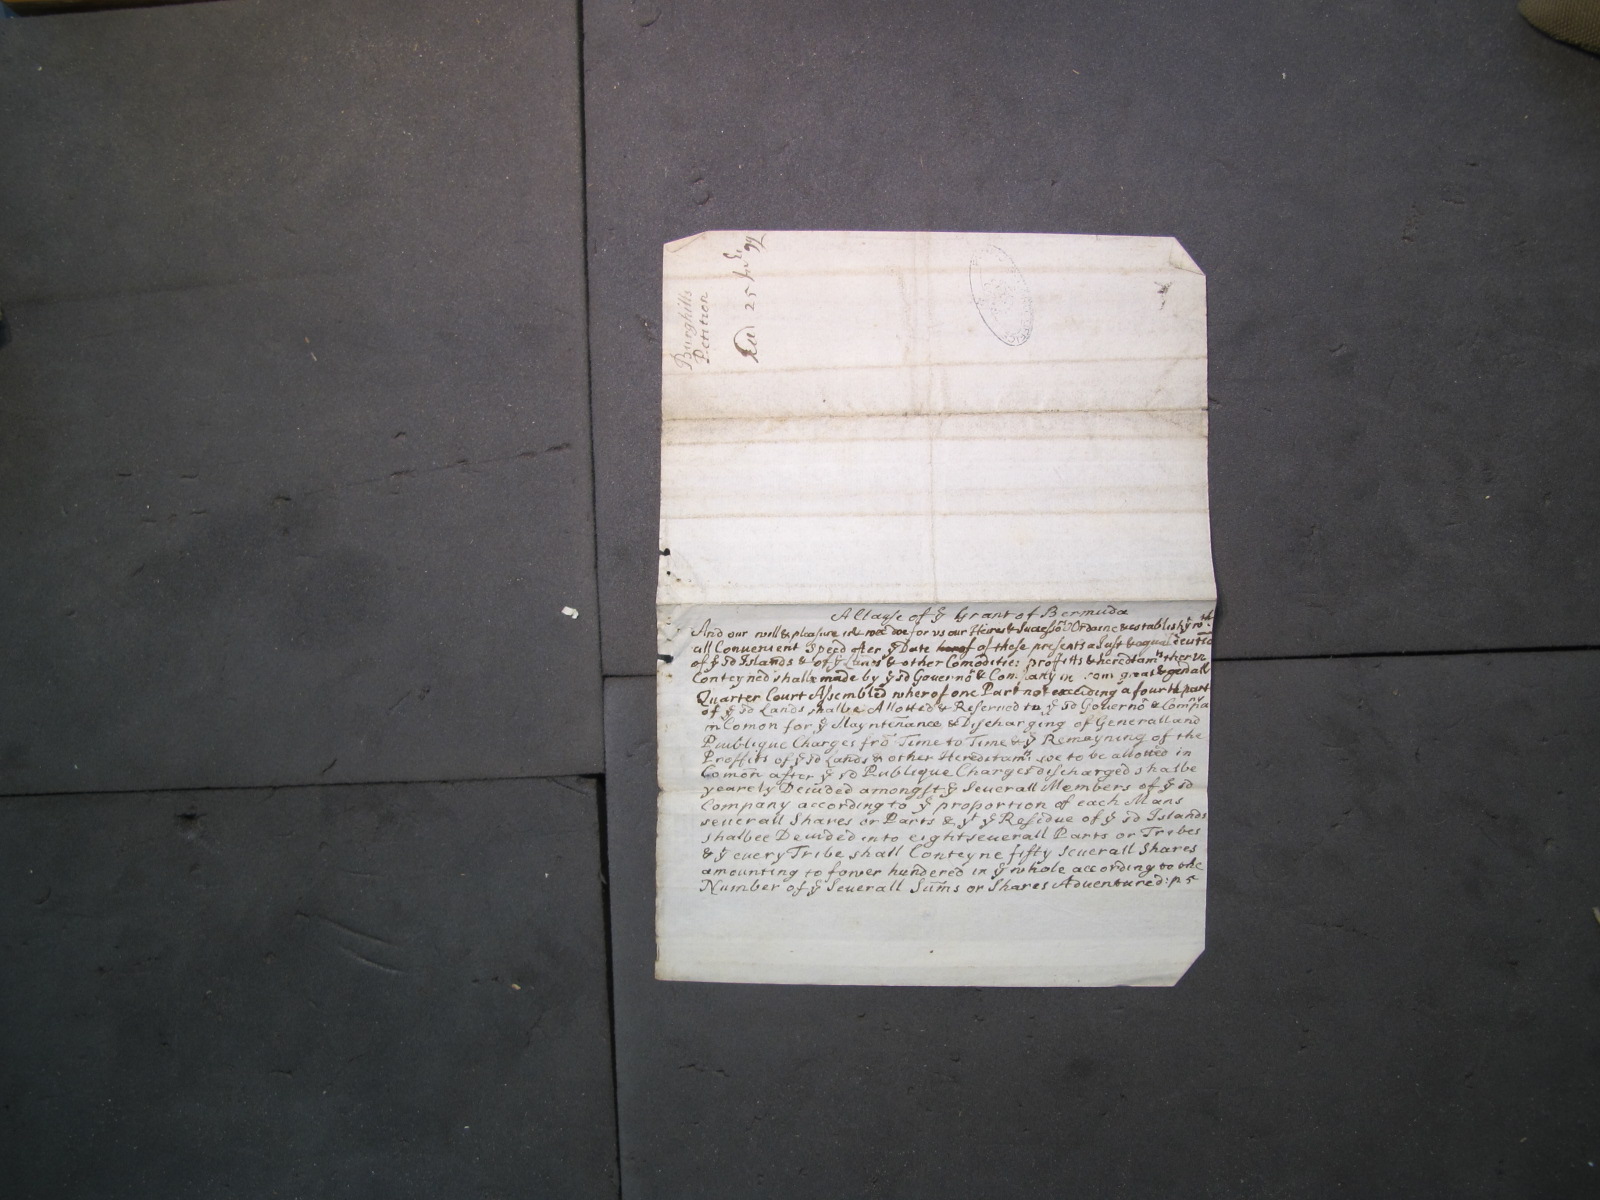 Burghills
Petition
25
A Clause of ye Grant of Bermuda
And our will & pleasure is & wee doe for us our Heires & Successors Ordaine & establish yt wth
all Convenient Speed after ye Date hereof of these presents a Just & equal
of ye sd Islands & of ye Lands & other Comodities profitts & hereditamts therin
Conteyned shalbe made by ye sd Governor & Company in som great & gen̄all
Quarter Court Assembled wherof one Part not exceeding a fourth part
of ye sd Lands shalbe Allotted & Reserved to ye sd Governor & Compa
in Comon for ye Mayntenance & Discharging of Generall and
Puublique Charges frō Time to Time & ye Remayning of the
Proffits of ye sd Lands & other Hereditamts soe to be allotted in
Comōn after ye sd Publique Charges discharged shalbe
yearely Devided amongst ye severall Members of ye sd
Company according to ye proportion of each Mans
severall Shares or Parts & yt ye Residue of ye sd Islands
shalbee Devided into eight severall Parts or Tribes
& yt every Tribe shall Conteyne fifty severall Shares
amounting to fower hundered in ye whole according to the
Number of ye Severall Sūms or Shares Adventured: p 5